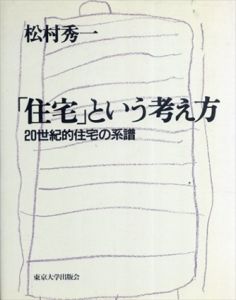 松村秀一
「住宅」という考え方
20世紀的住宅の系譜
東京大学出版会